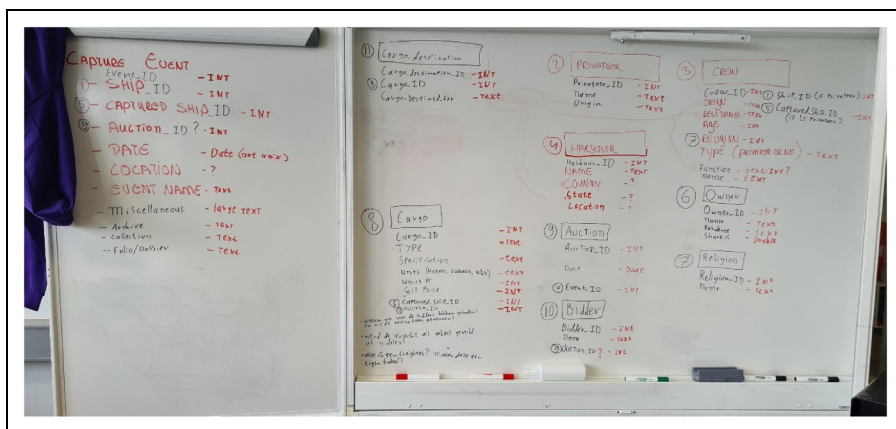 CAPTURE EVENT
Event_ID - INT
① SHIP_ID - INT
⑤ CAPTURED SHIP_ID - INT
⑨ AUCTION_ID? - INT
- DATE - Date (not unix)
- LOCATION - ?
- EVENT NAME - Text
- Miscellaneous - large TEXT
- Archive - Text
- Collection - Text
- Folio/Dossier - Text
⑪ Cargo_destination
Cargo_destination_ID - INT
⑧ Cargo_ID - INT
Cargo_Destined_for - Text
② PRIVATEER
Privateer_ID - INT
Name - Text
Origin - Text
③ CREW
Crew_ID - INT
ORIGIN - Text
RESIDENCE - Text
AGE - INT
⑦ RELIGION - INT
TYPE (PRIVATEER OR NO) - Text
Function - text/INT?
name - text
① Ship_ID (if Privateer) - INT
⑤ Captured Ship_ID - INT
④ HARBOUR
Harbour_ID - INT
NAME - Text
COUNTRY - ?
State - ?
Location - ?
⑥ Owner
Owner_ID - INT
name - Text
Residence - text
Shares - Double
⑦ Religion
Religion_ID - INT
name - Text
⑧ Cargo
Cargo_ID - INT
TYPE - Text
Specification - text
- text
- INT
Sell Price - INT
⑤ Captured_Ship_ID - INT
⑨ AUCTION_ID - INT
eigen tabel?
⑨ Auction
Auction_ID - INT
Date - Date
Event_ID - INT
⑩ Bidder
Bidder_ID - INT
Name - text
⑨ Auction_ID? - INT